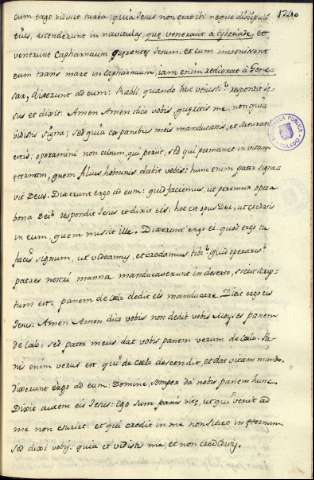 cum ergo vidisset turba, quia Jesus non erat ibi neque discipuli
eius, ascenderunt in naviculas, que venerant a tyberiade, et
venerunt Capharnaum querentes Jesum. et cum invenissent
eum trans mare in Capharnaum, iam enim redierat a Gene-
sar, dixerunt ad eum: Rabbi quando huc venisti? respondit ip-
sis et dixit. Amen Amen dico vobis, queritis me non quia
vidistis signa; sed quia ex panibus meis manducastis, et saturati
estis, operamini non cibum, qui perit, sed qui permanet in vitam
eternam, quem filius hominis dabit vobis: hunc enim pater signa-
vit Deus. Dixerunt ergo ad eum: quid faciemus, ut operemur opera
bona Dei? respondit Jesus et dixit eis: hoc est opus Dei, ut credatis
in eum, quem misit ille. Dixerunt ergo ei quod ergo tu
facis signum, ut videamus, et credamus tibi? quid operaris?
patres nostri manna manducaverunt in deserto, sicut scrip-
tum est: panem de celo dedit eis manducare. Dicit ergo eis
Jesus: Amen Amen dico vobis non dedit vobis Moyses panem
de celo: sed pater meus dat vobis panem verum de celo. Pa-
nis enim verus est qui de celo descendit, et dat vitam mundo.
dixerunt ergo ad eum: Domine, semper da nobis panem hunc.
Dixit autem eis Jesus: Ego sum panis vite, et qui venit ad
me non esuriet: et qui credit in me non sitiet in eternum
sed dixi vobis, quia et vidistis me, et non credidistis.